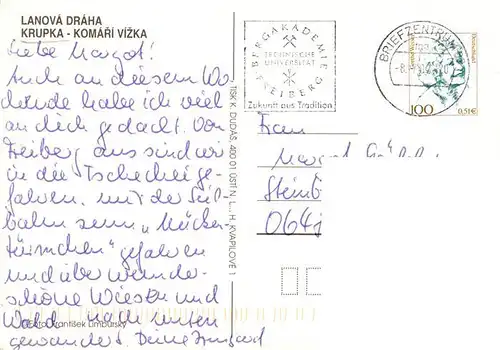 LANOVÁ DRÁHA
KRUPKA - KOMÁŘÍ VÍŽKA
Liebe Margot!
Auch an diesem Wo
chende habe ich viel
an dich gedacht. Von
Freiberg aus sind wir
in die Tschechei ge-
fahren, mit der Seil-
bahn zum „Mücken-
türmchen" gefahren
und über wunder-
schöne Wiesen und
Wald nach unten
gewandert. Deine Irmgard
Foto: František Limburský
TISK K. DUDÁŠ, 400 01 ÚSTÍ N. L., H. KVAPILOVÉ 1
BERGAKADEMIE
TECHNISCHE
UNIVERSITÄT
FREIBERG
Zukunft aus Tradition
BRIEFZENTRUM
100
0,51€
Frau
Margot
Steinb
064